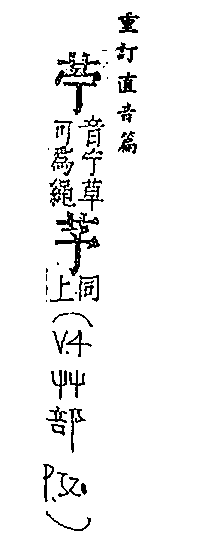 重訂直音篇
苧
音宁草
可為繩
同
上
(V.4
艸
部
)